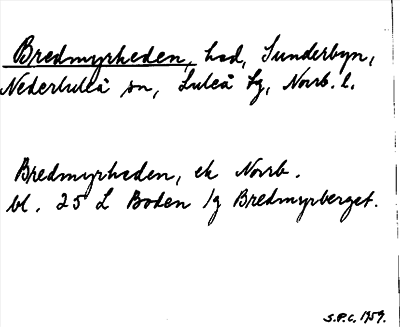 Bredmyrheden, hed, Sunderbyn,
Nederluleå sn, Luleå tg, Norrb. l.
Bredmyrheden, ek Norrb.
bl. 25 L Boden /g Bredmyrberget.
S.P.C. 1959.